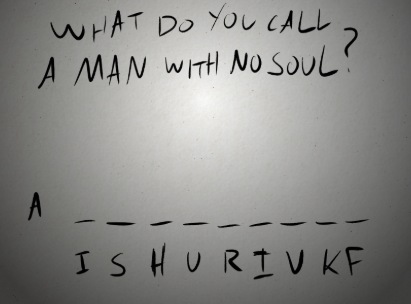 WHAT DO YOU CALL
A MAN WITH NO SOUL?
A _ _ _ _ _ _ _ _ _
I S H U R I V K F